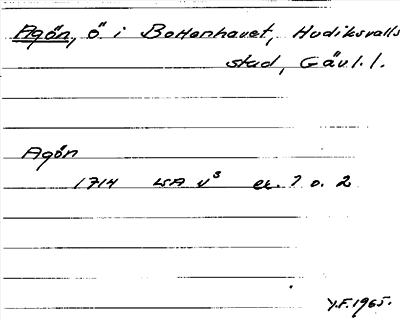 Agön, ö i Bottenhavet, Hudiksvalls
stad, Gävl.l.
Agön
1714 LSA v³ ex. 1 o. 2
Y.F. 1965.